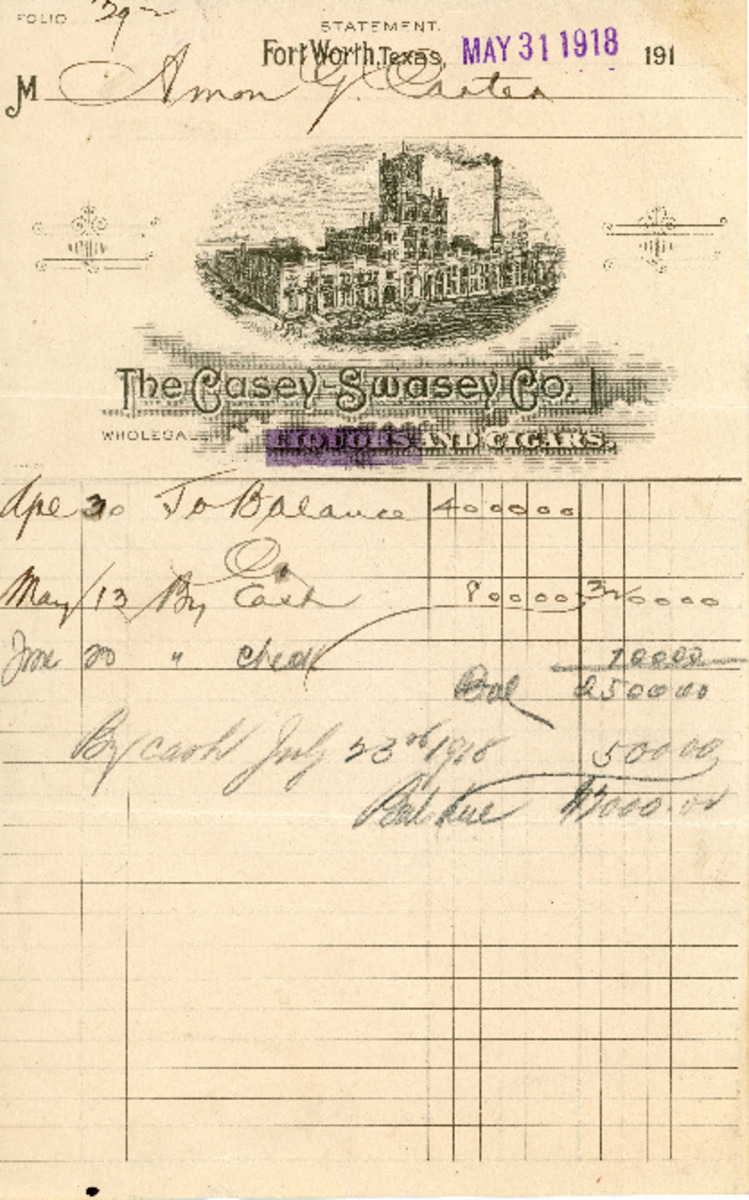 FOLIO 392
STATEMENT.
Fort Worth, Texas, MAY 31 1918 191
M Amon G. Carter
The Casey-Swasey Co.
WHOLESALE LIQUORS AND CIGARS.
Apl 30 To Balance 4000 00
Cr
May 13 By Cash 800 00 3200 00
June 20 " Check 700 00
Bal 2500 00
By cash July 23rd 1918 500 00
Bal due $2000.00